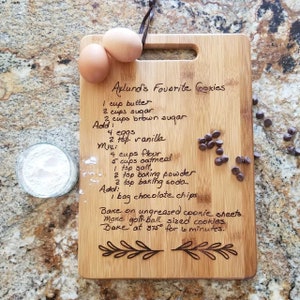 Favorite Cookies
1 cup butter
2 cups sugar
2 cups brown sugar
Add:
4 eggs
2 tsp vanilla
Mix:
4 cups flour
5 cups oatmeal
1 tsp salt
2 tsp baking powder
2 tsp baking soda
Add:
1 bag chocolate chips
Bake on ungreased cookie sheets.
Make golf ball sized cookies.
Bake at 375° for 6 minutes.